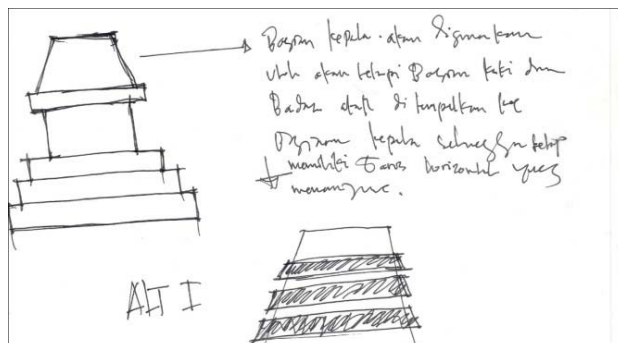 Bagian kepala akan digunakan
utuh akan tetapi Bagian kaki dan
Badan akan ditumpulkan ke
Bagian kepala sehingga tetap
memiliki Garis horizontal yang
ALT I